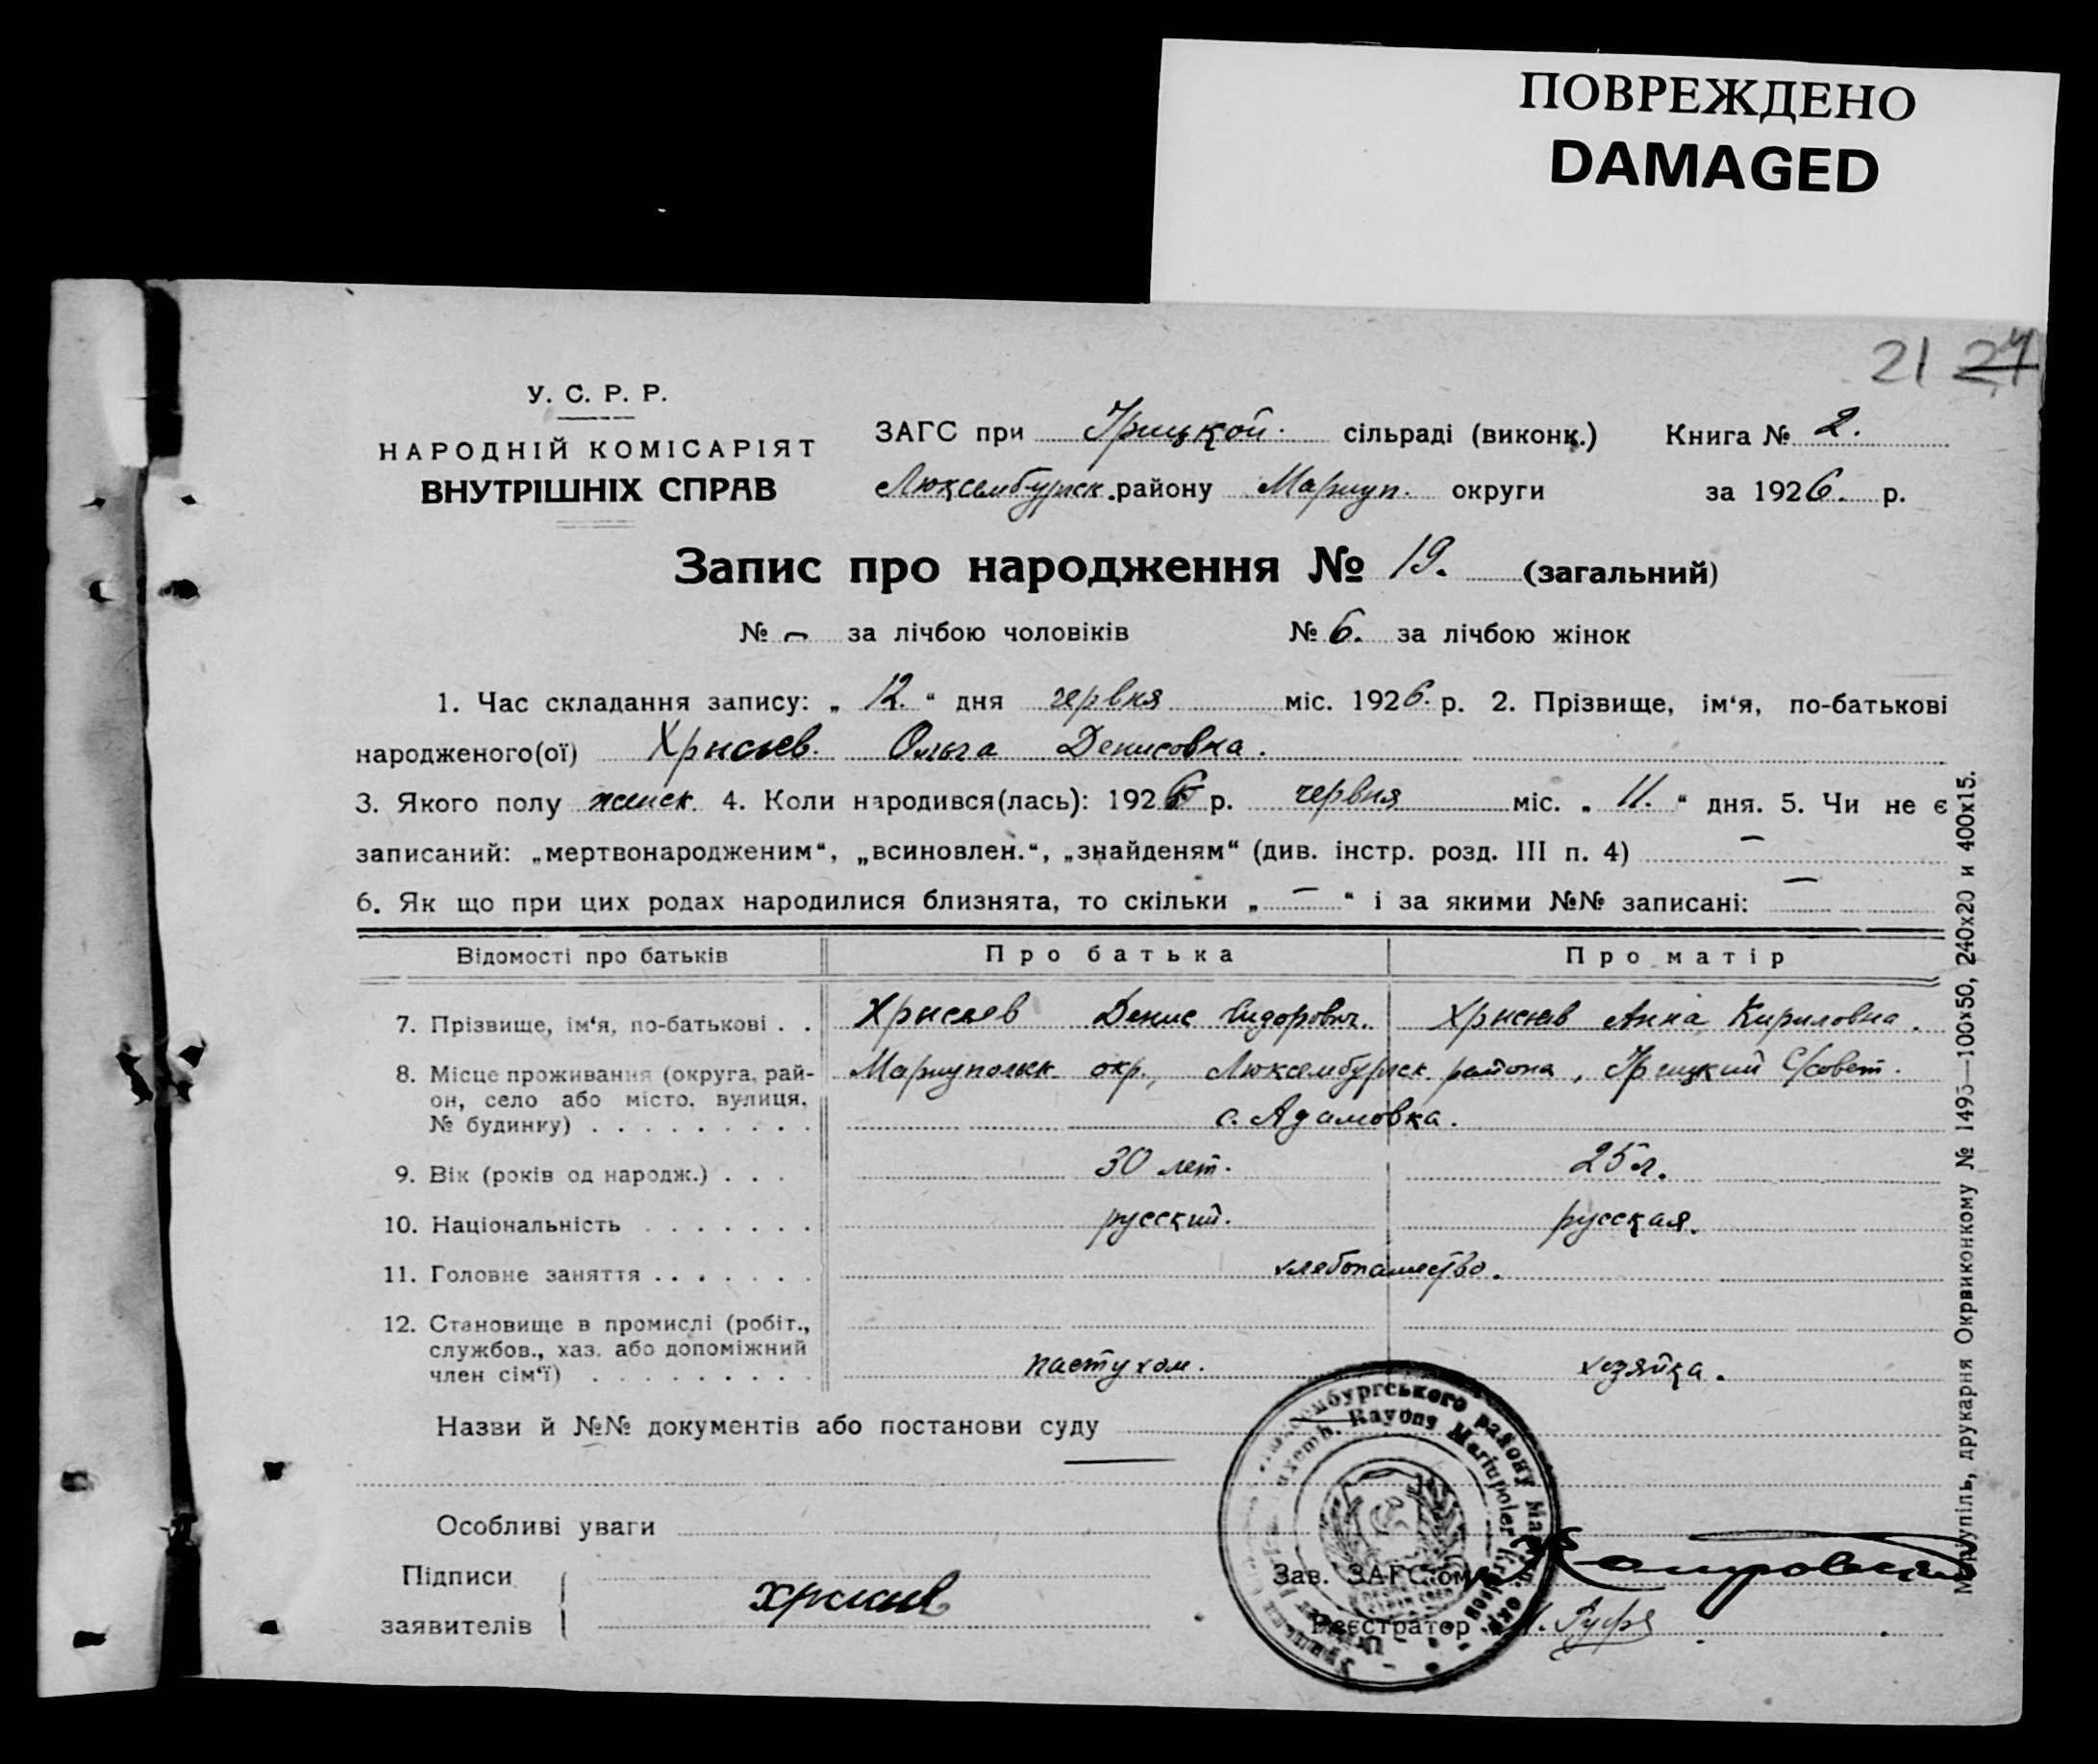 ПОВРЕЖДЕНО
DAMAGED
21 27
У. С. Р. Р.
НАРОДНІЙ КОМІСАРІЯТ
ВНУТРІШНІХ СПРАВ
ЗАГС при Урицкой. сільраді (виконк.) Книга № 2.
Люксембургск. району Мариуп. округи за 1926. р.
Запис про народження № 19. (загальний)
№ – за лічбою чоловіків № 6. за лічбою жінок
1. Час складання запису: „ 12. “ дня червня міс. 1926. р. 2. Прізвище, ім‘я, по-батькові
народженого(ої) Ольга Денисовна.
3. Якого полу женск. 4. Коли народився(лась): 1926 р. червня міс. „ 11. “ дня. 5. Чи не є
записаний: „мертвонародженим“, „всиновлен.“, „знайденям“ (див. інстр. розд. III п. 4) –
6. Як що при цих родах народилися близнята, то скільки „ – “ і за якими №№ записані: –
Відомості про батьків Про батька Про матір
7. Прізвище, ім‘я, по-батькові . . Денис Сидорович. Анна Кириловна.
8. Місце проживання (округа, рай-
он, село або місто, вулиця,
№ будинку) . . . . . . . . .
Мариупольск окр., Люксембургск района, Урицкий С/совет.
с. Адамовка.
9. Вік (років од народж.) . . . 30 лет. 25 л.
10. Національність . . . . . . . русский. русская.
11. Головне заняття . . . . . . . хлебопашество.
12. Становище в промислі (робіт.,
службов., хаз. або допоміжний
член сім‘ї) . . . . . . . . . пастухом. хозяйка.
Назви й №№ документів або постанови суду
Особливі уваги
Підписи
заявителів
Зав. ЗАГС‘ом
Реєстратор
Маріупіль, друкарня Окрвиконкому № 1493—100x50, 240x20 и 400x15.